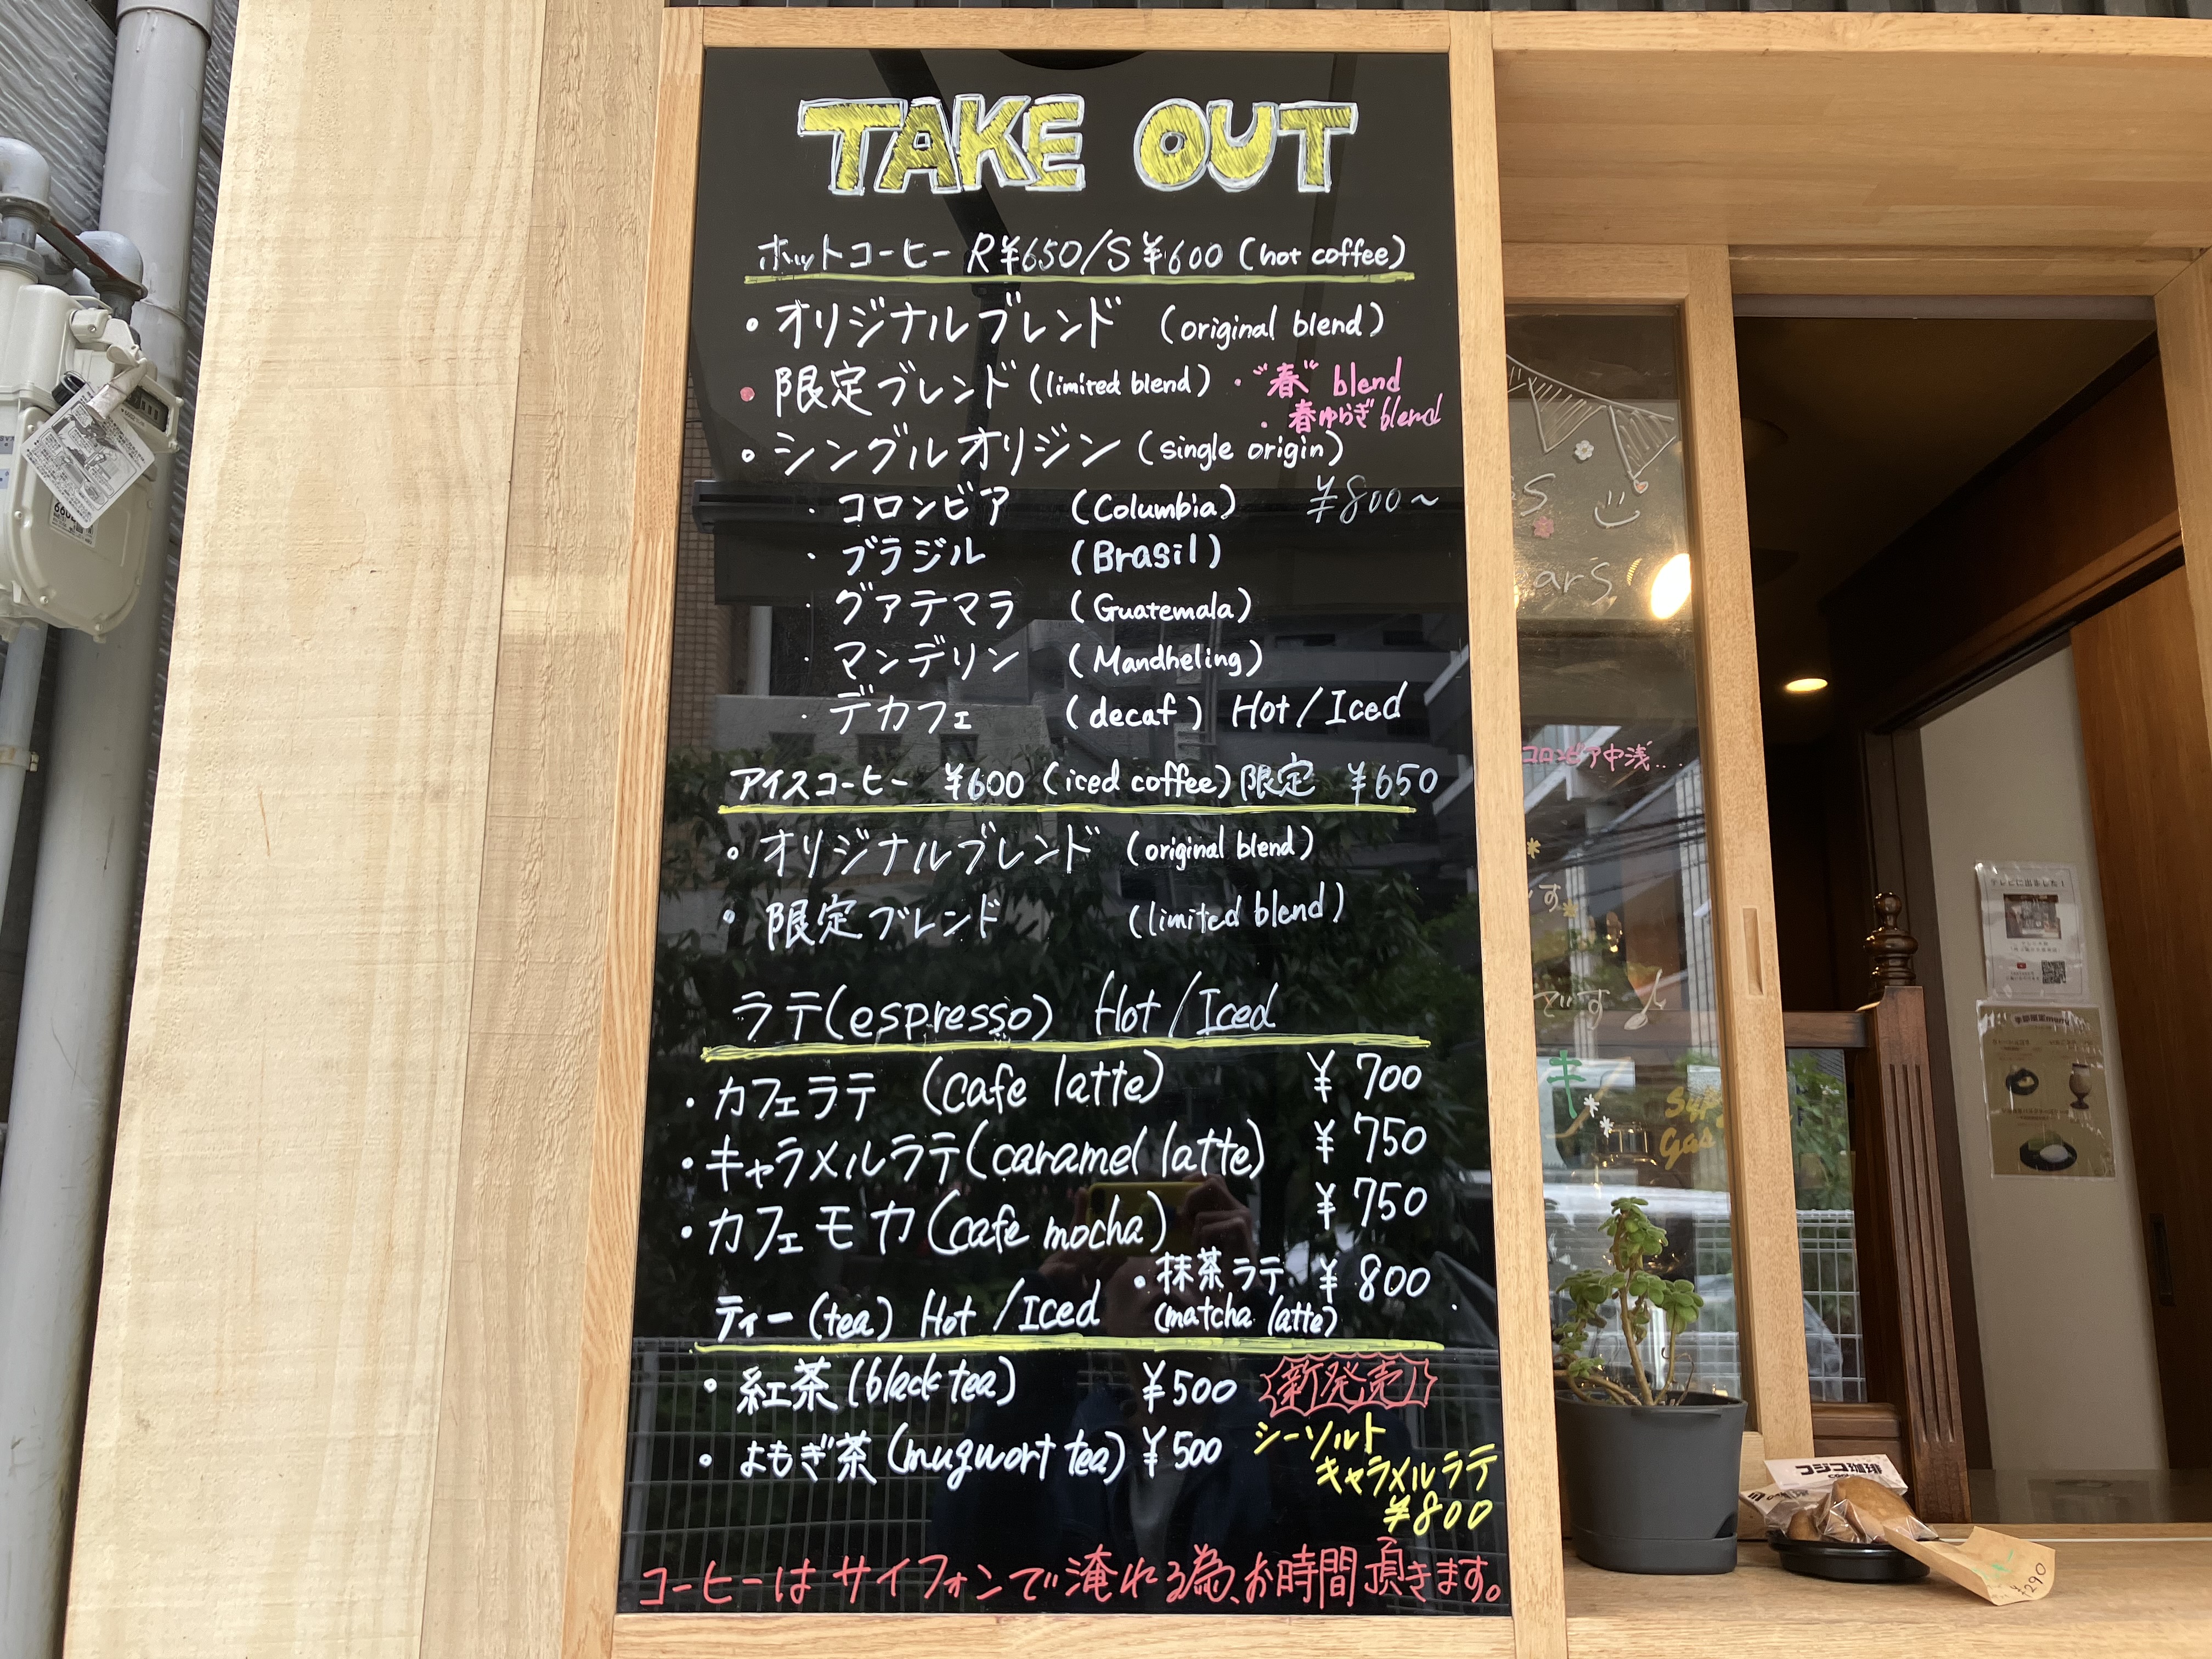 TAKE OUT
ホットコーヒー R¥650/S¥600 (hot coffee)
・オリジナルブレンド (original blend)
・限定ブレンド (limited blend) ・"春" blend
・春ゆらぎ blend
・シングルオリジン (single origin)
・コロンビア (Columbia) ¥800〜
・ブラジル (Brasil)
・グァテマラ (Guatemala)
・マンデリン (Mandheling)
・デカフェ (decaf) Hot/Iced
アイスコーヒー ¥600 (iced coffee) 限定 ¥650
・オリジナルブレンド (original blend)
・限定ブレンド (limited blend)
ラテ(espresso) Hot/Iced
・カフェラテ (cafe latte) ¥700
・キャラメルラテ(caramel latte) ¥750
・カフェモカ(cafe mocha) ¥750
・抹茶ラテ ¥800
(matcha latte)
ティー(tea) Hot/Iced
・紅茶(black tea) ¥500
新発売!!
・よもぎ茶(mugwort tea) ¥500
シーソルト
キャラメルラテ
¥800
コーヒーはサイフォンで淹れる為、お時間頂きます。
コロンビア中浅..
です♪
テレビに出ました!
季節限定menu
フジコ珈琲
¥290